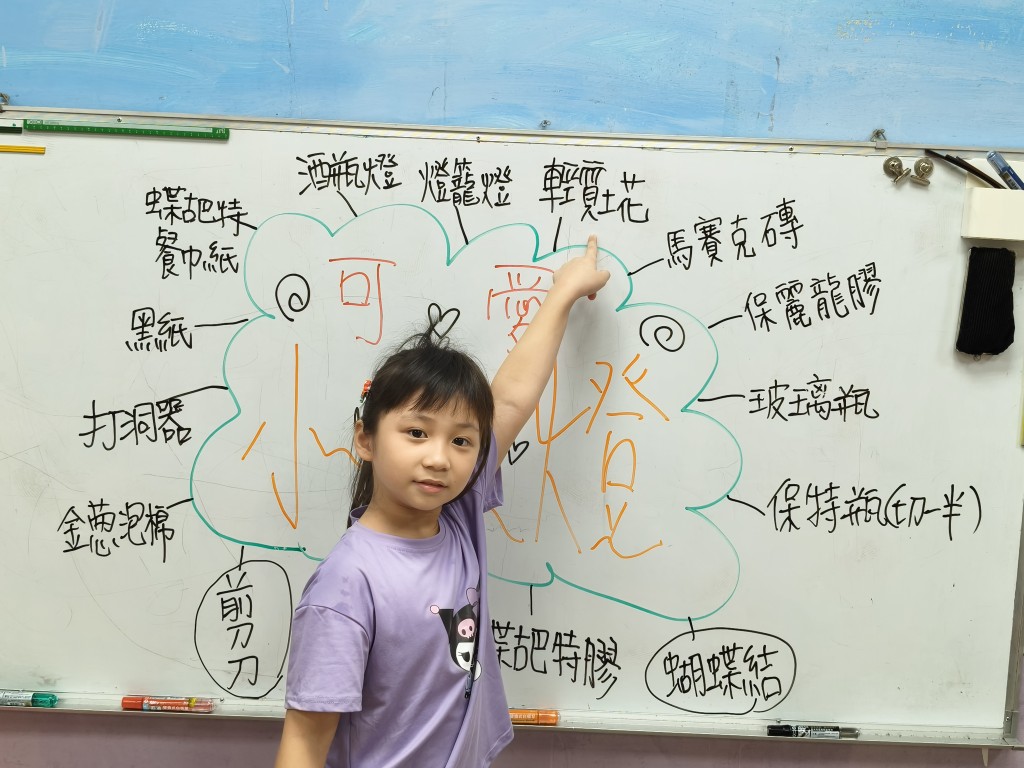 酒瓶燈
燈籠燈
輕質土花
蝶古巴特
餐巾紙
馬賽克磚
黑紙
可愛
保麗龍膠
打洞器
小
燈
玻璃瓶
金蔥泡棉
保特瓶(切一半)
剪刀
蝶古巴特膠
蝴蝶結